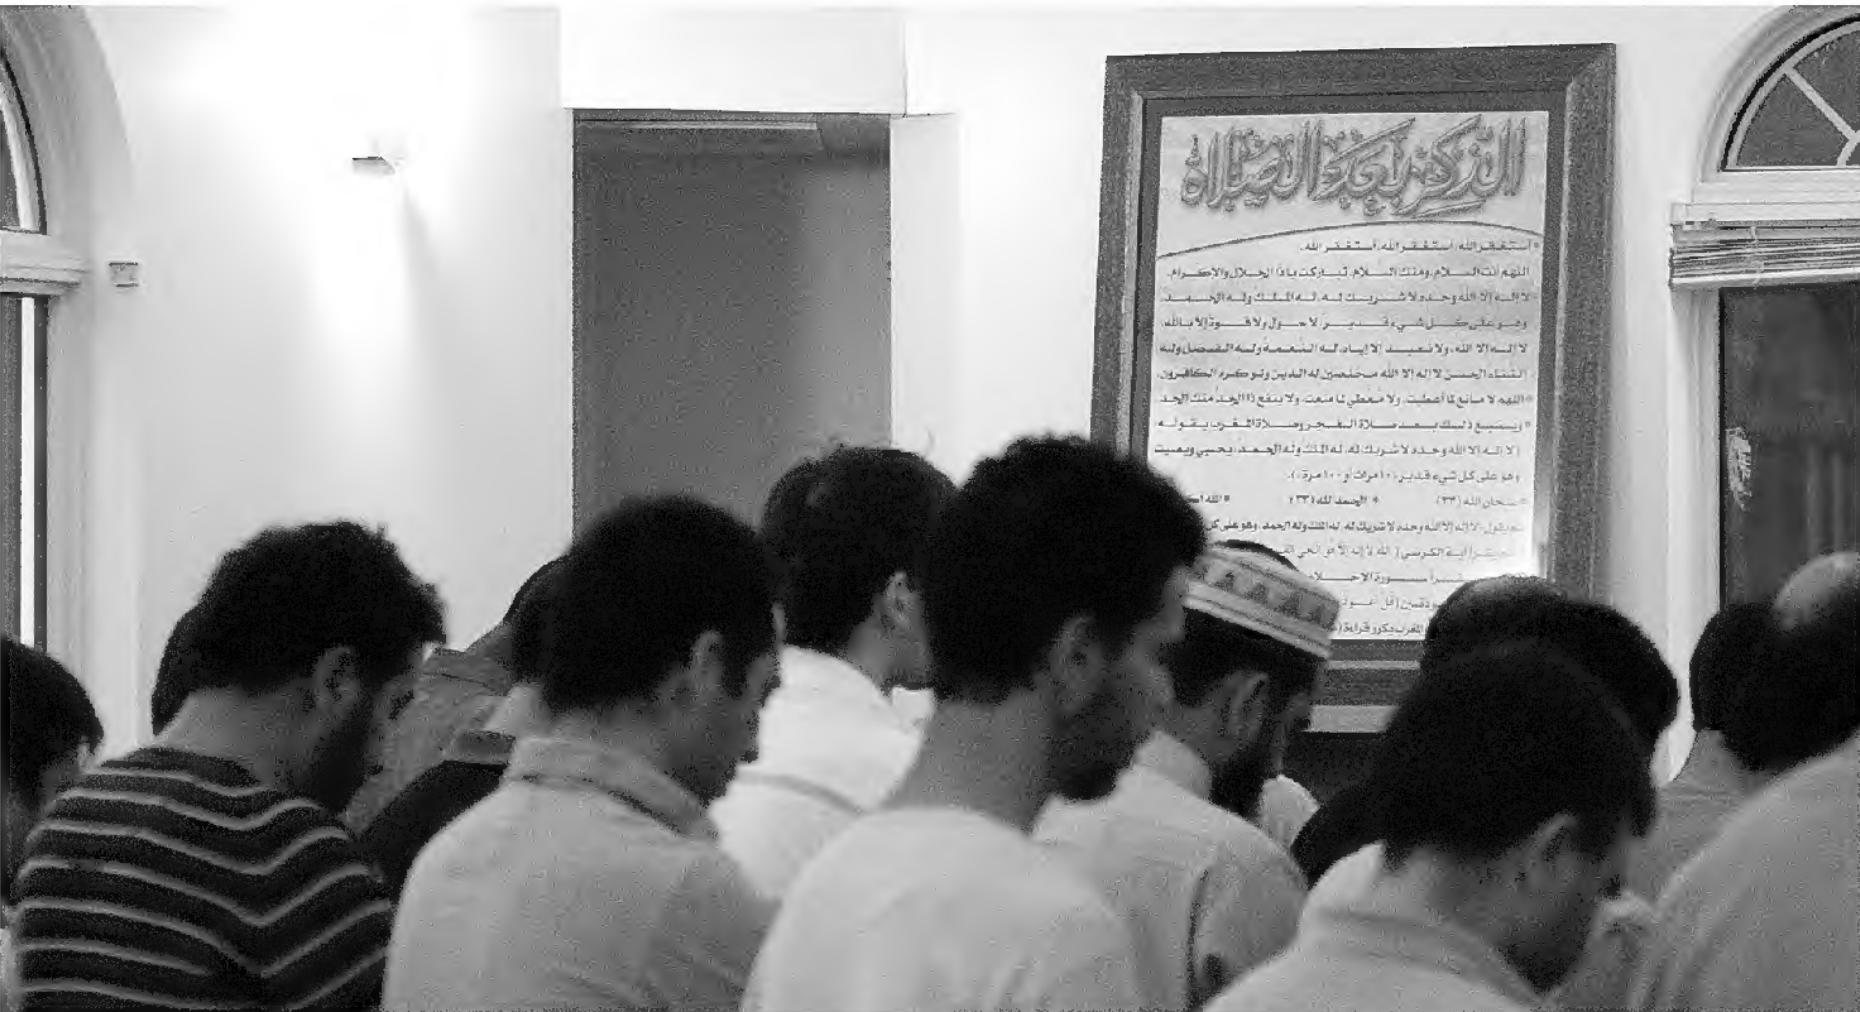 الذكر بعد الصلاة
* أستغفر الله، أستغفر الله، أستغفر الله.
اللهم أنت السلام، ومنك السلام، تباركت يا ذا الجلال والإكرام.
* لا إله إلا الله وحده لا شريك له، له الملك وله الحمد،
وهو على كل شيء قدير، لا حول ولا قوة إلا بالله،
لا إله إلا الله، ولا نعبد إلا إياه، له النعمة وله الفضل وله
الثناء الحسن لا إله إلا الله مخلصين له الدين ولو كره الكافرون.
* اللهم لا مانع لما أعطيت، ولا معطي لما منعت، ولا ينفع ذا الجد منك الجد.
* ذلك بعد صلاة الفجر وصلاة المغرب بقوله:
لا إله إلا الله وحده لا شريك له، له الملك وله الحمد، يحيي ويميت
وهو على كل شيء قدير، (١٠ مرات أو ١٠٠ مرة).
* سبحان الله (٣٣) * الحمد لله (٣٣) * الله
يقول: لا إله إلا الله وحده لا شريك له، له الملك وله الحمد، وهو على كل
آية الكرسي (الله لا إله إلا هو الحي
سورة
(قل أعوذ
المغرب يكرر قراءة